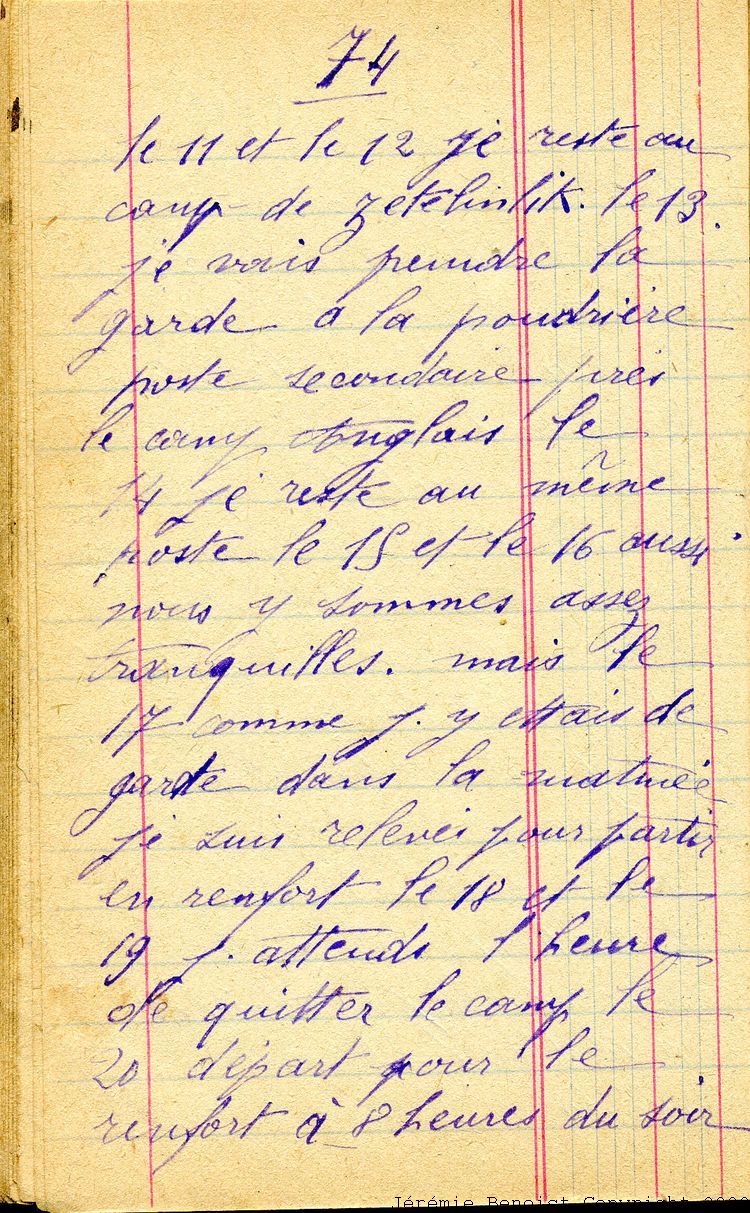 74
le 11 et le 12 je reste au
camp de Zetelinlik. le 13
je vais prendre la
garde a la poudrière
poste secondaire près
le camp Anglais le
14 je reste au même
poste le 15 et le 16 aussi
nous y sommes assez
tranquilles. mais le
17 comme j. y ettais de
garde dans la matinée
je suis relevés pour partir
en renfort le 18 et le
19 j. attends l'heure
de quitter le camp le
20 départ pour le
renfort à 8 heures du soir
Jérémie Benoist Copyright